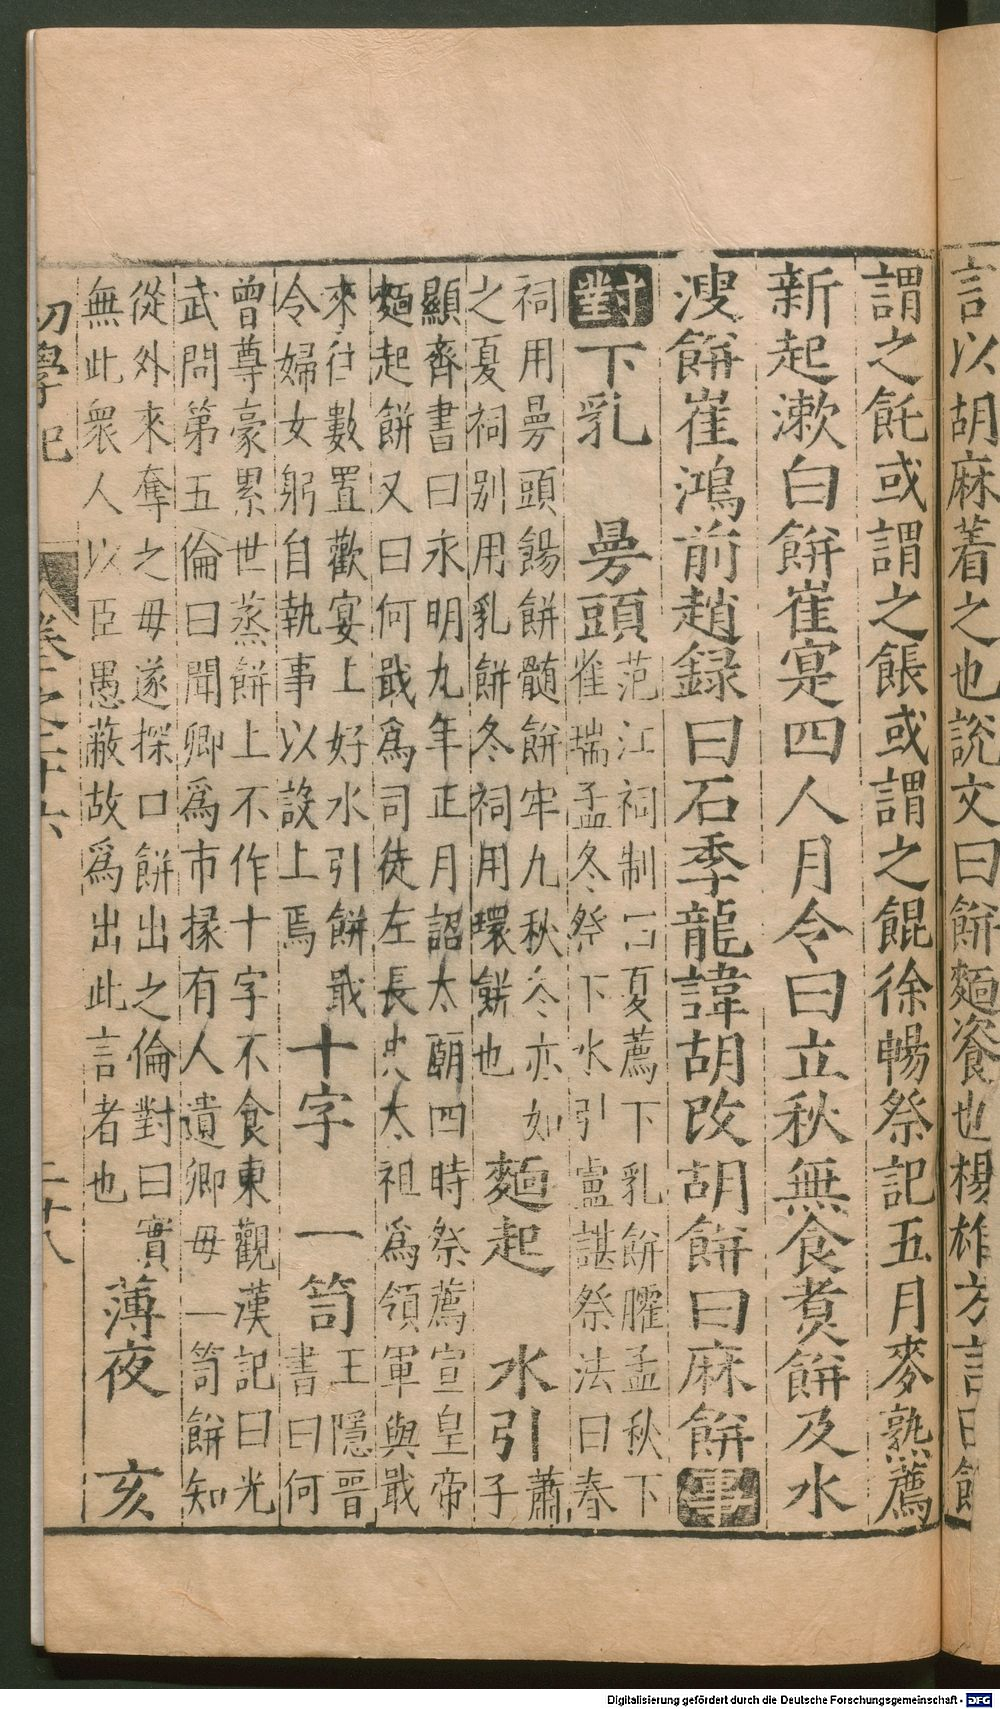 言以胡麻着之也說文曰餅麵餈也楊雄方言曰餅
謂之飥或謂之餦或謂之餛徐暢祭記五月麥熟薦
新起漱白餅崔寔四人月令曰立秋無食煑餅及水
溲餅崔鴻前趙録曰石季龍諱胡改胡餅曰麻餅事
對下乳　曼頭范江祠制曰夏薦下乳餅臛孟秋下
雀瑞孟冬祭下水引盧諶祭法曰春
祠用曼頭餳餅髓餅牢九秋冬亦如
之夏祠别用乳餅冬祠用環餅也麵起　水引蕭
子
顯齊書曰永明九年正月詔太廟四時祭薦宣皇帝
麵起餅又曰何戢爲司徒左長史太祖爲領軍與戢
來往數置歡宴上好水引餅戢
令婦女躬自執事以設上焉十字　一笥王隱晉
書曰何
曾尊豪累世蒸餅上不作十字不食東觀漢記曰光
武問第五倫曰聞卿爲市掾有人遺卿母一笥餅知
從外來奪之母遂探口餅出之倫對曰實
無此衆人以臣愚蔽故爲出此言者也薄夜　亥
初學記　卷之二十六　二十八
Digitalisierung gefördert durch die Deutsche Forschungsgemeinschaft - DFG